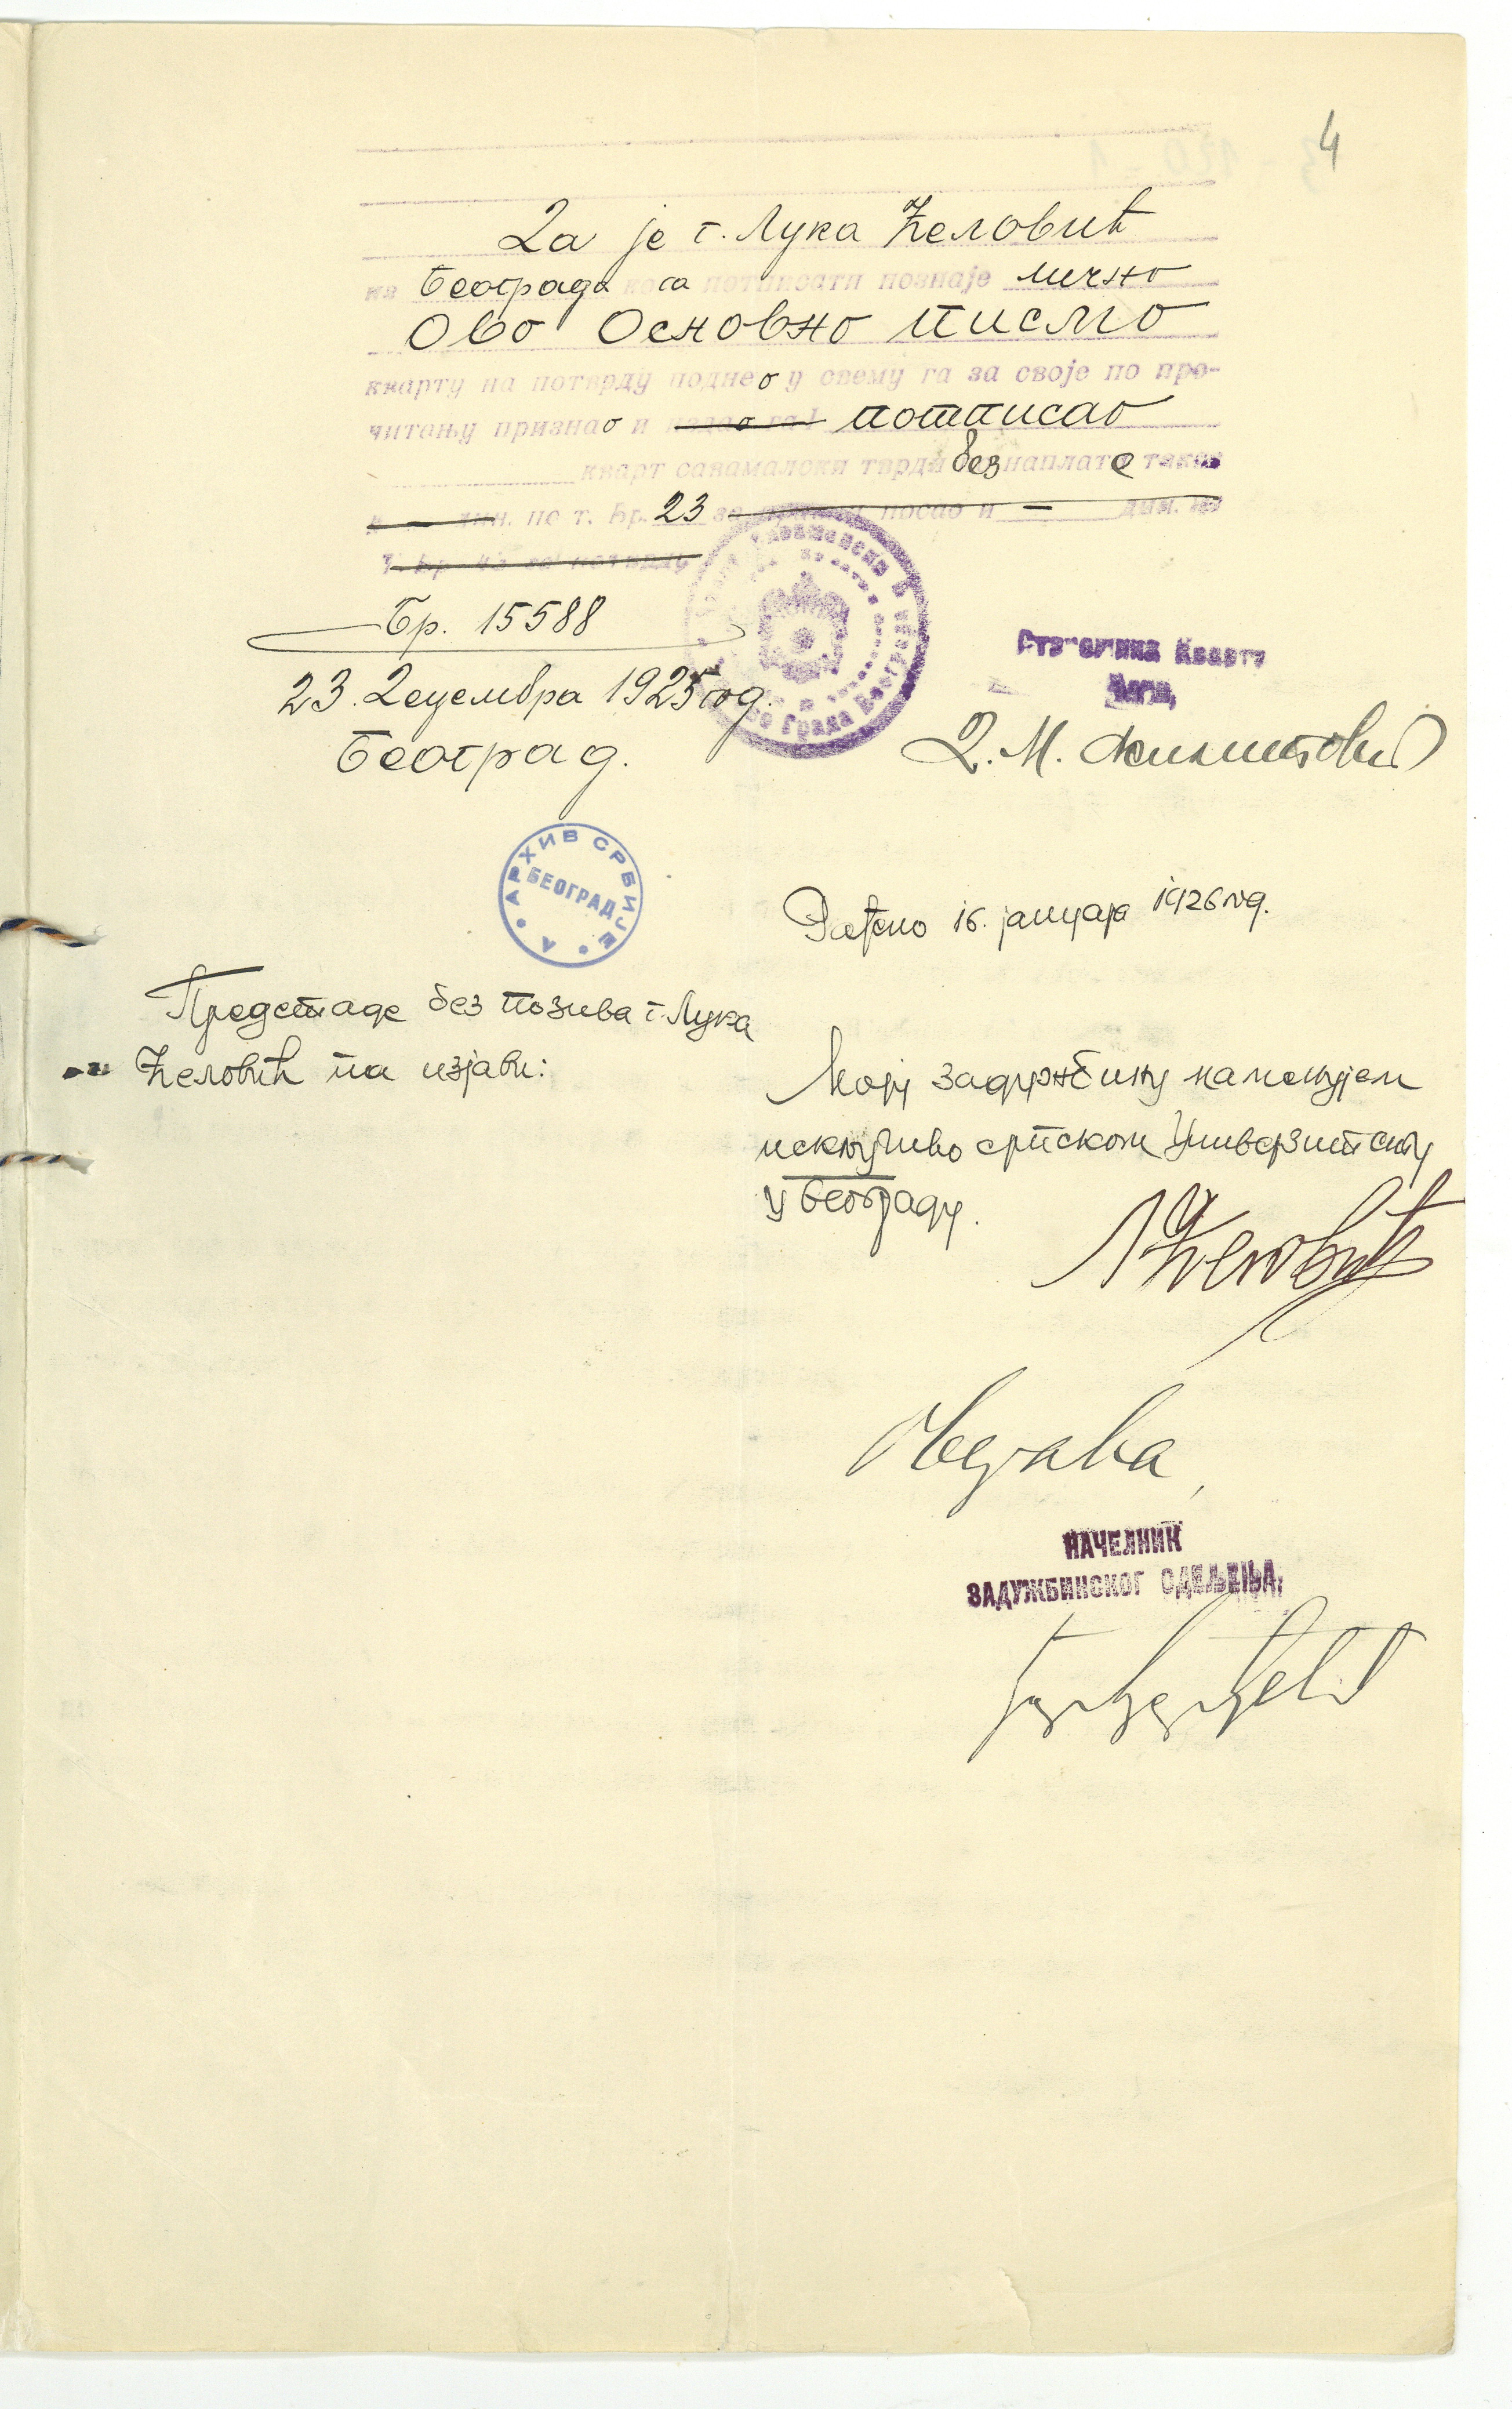 4
Да је г. Лука Ћеловић
из Београда кога потписати познаје лично
Ово Основно писмо
кварту на потврду поднео у свему га за своје по про-
читању признао и потписао
кварт савамалски тврди без наплате таксе
дин. по т. Бр. 23 за посао и — дин. по
Т. Бр. за потврду
Бр. 15588
23. Децембра 1925 год.
Београд.
Старешина Кварта
Д. М.
АРХИВ СРБИЈЕ
БЕОГРАД
А
Рађено 16. јануара 1926 год.
Предстаде без позива г. Лука
Ћеловић па изјави:
Моју задужбину намењујем
искључиво српском Универзитету
у Београду.
Л Ћеловић
Оверава,
НАЧЕЛНИК
ЗАДУЖБИНСКОГ ОДЕЉЕЊА,